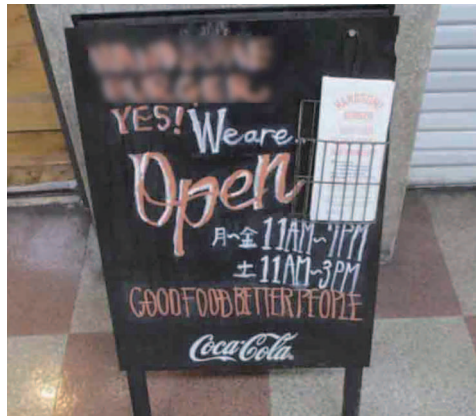 YES! We are
Open
月~金 11AM~7PM
土 11AM~3PM
GOOD FOOD BETTER PEOPLE
Coca-Cola
HANDSOME
BURGER